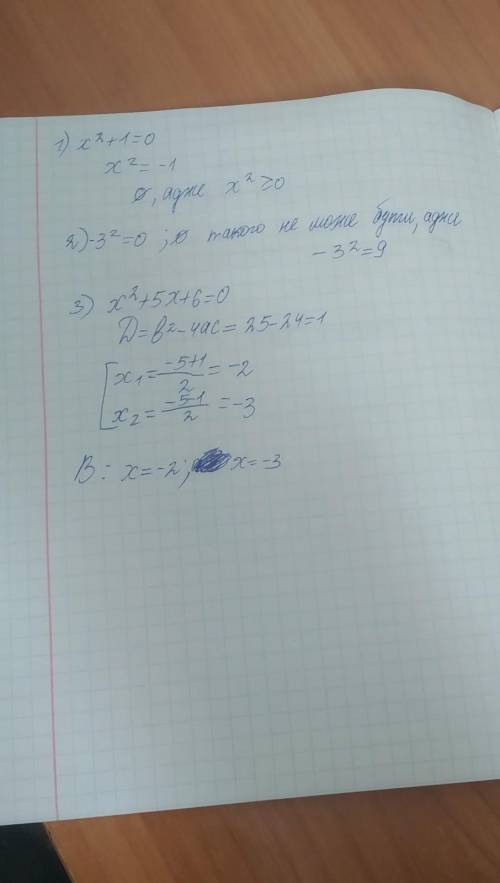 1) x²+1=0
x²=-1
∅, адже x²≥0
2) -3²=0 ; ∅ такого не може бути, адже
-3²=9
3) x²+5x+6=0
D=b²-4ac=25-24=1
[x₁=\frac{-5+1}{2}=-2
x₂=\frac{-5-1}{2}=-3
В: x=-2; x=-3